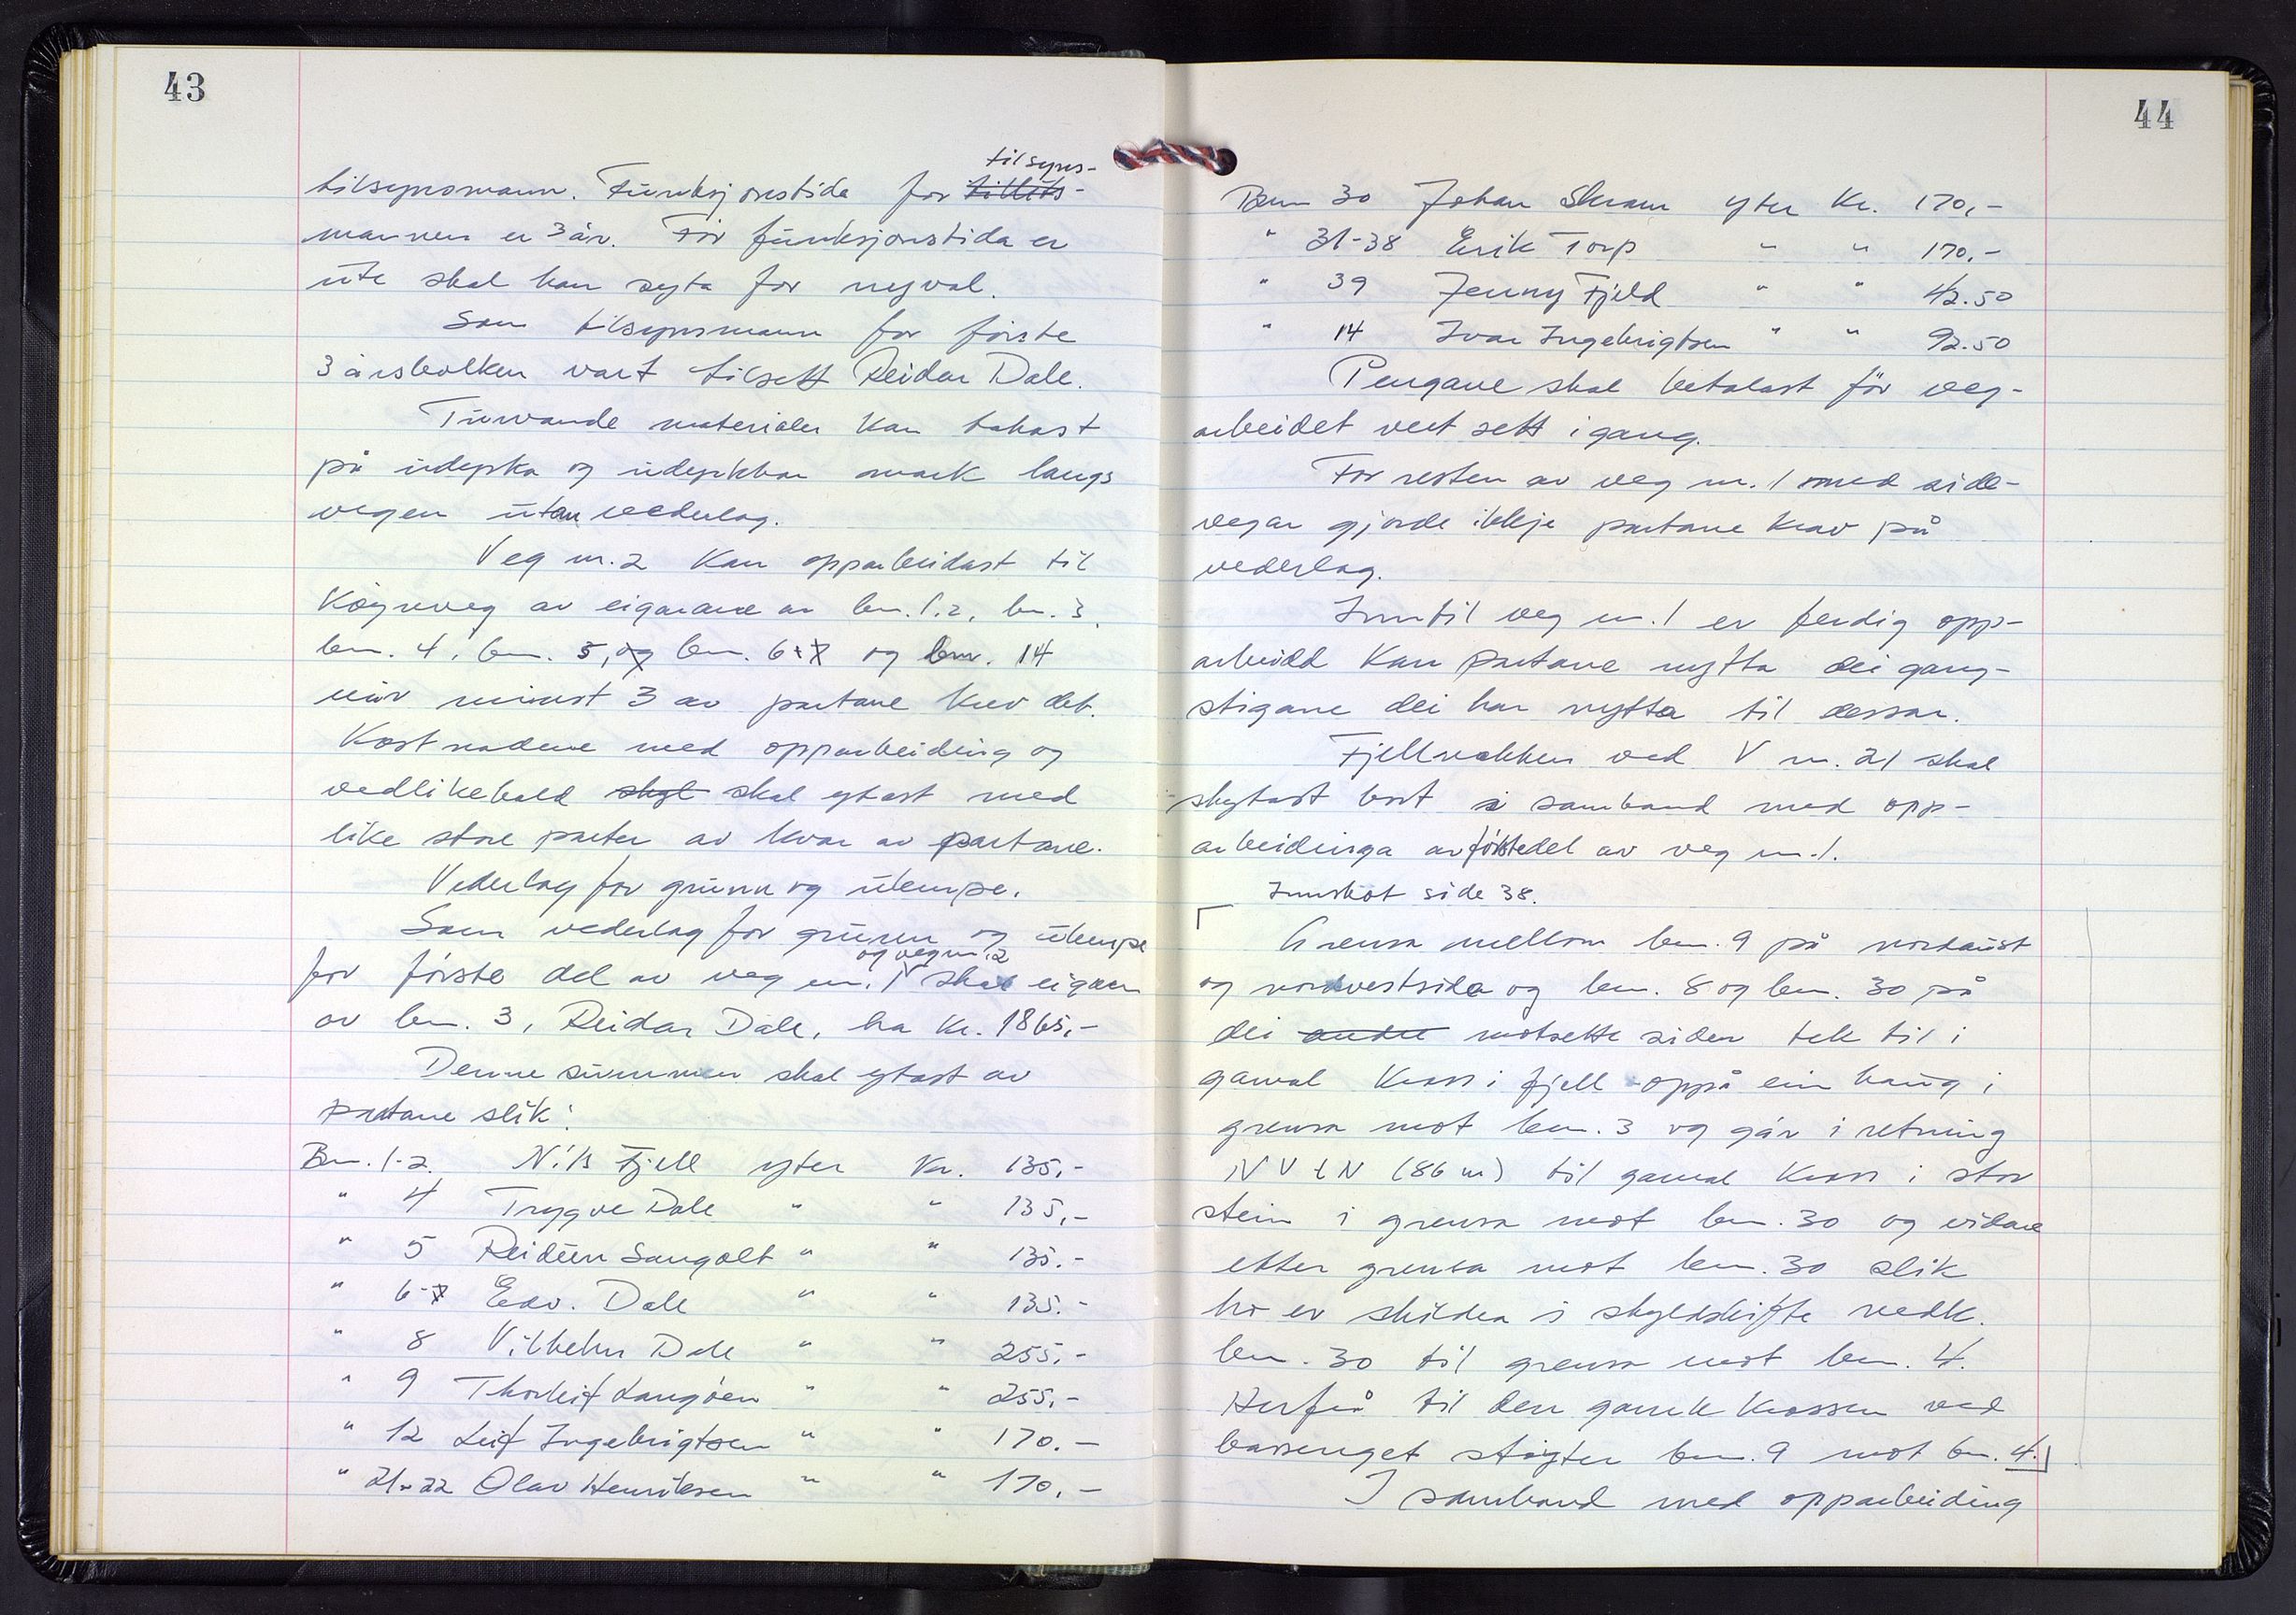 43
tilsyns-
tilsynsmann. Funksjonstida for tillits-
mannen er 3 år. Før funksjonstida er
ute skal han syta for nyval.
Som tilsynsmann for første
3 årsbolken vart tilsett Reidar Dale.
Turvande materialer kan takast
på udyrka og udyrkbar mark langs
vegen utan vederlag.
Veg nr. 2 kan opparbeidast til
køyreveg av eigarane av bnr. 1.2, bnr. 3,
bnr. 4, bnr. 5, og bnr. 6+7 og bnr. 14
når minst 3 av partane krev det.
Kostnadene med opparbeiding og
vedlikehald skyt skal ytast med
like store parter av kvar av partane.
Vederlag for grunn og ulempe.
Som vederlag for grunn og ulempe
og veg nr. 2
for første del av veg nr. 1 skal eigaren
av bnr. 3, Reidar Dale, ha kr. 1865,-
Denne summen skal ytast av
partane slik:
Bnr. 1-2. Nils Fjell yter kr. 135,-
" 4 Trygve Dale " " 135,-
" 5 Reidun Sangolt " " 135.-
" 6-7 Edv. Dale " " 135.-
" 8 Vilhelm Dale " " 255,-
" 9 Thorleif Langøen " " 255,-
" 12 Leif Ingebrigtsen " " 170.-
" 21-22 Olav Henriksen " " 170,-
44
Bnr 30 Johan Skram yter kr. 170,-
" 31-38 Erik Torp " " 170,-
" 39 Jenny Fjeld " " 42.50
" 14 Ivar Ingebrigtsen " " 92.50
Pengane skal betalast før veg-
arbeidet vert sett i gang.
For resten av veg nr. 1 med side-
vegar gjorde ikkje partane krav på
vederlag.
Inntil veg nr. 1 er ferdig opp-
arbeidd kan partane nytta dei gang-
stigane dei har nytta til dessar.
Fjellnakken ved V nr. 21 skal
skytast bort i samband med opp-
arbeidinga av første del av veg nr. 1.
Innskot side 38.
Grensa mellom bnr. 9 på nordaust
og nordvestsida og bnr. 8 og bnr. 30 på
dei andre motsette sider tek til i
gamal kross i fjell oppå ein haug i
grensa mot bnr. 3 og går i retning
N V t N (86 m) til gamal kross i stor
stein i grensa mot bnr. 30 og vidare
etter grensa mot bnr. 30 slik
ho er skildra i skyldskifte vedk.
bnr. 30 til grensa mot bnr. 4.
Herfrå til den gamle krossen ved
bassenget støyter bnr. 9 mot bnr. 4.
I samband med opparbeiding